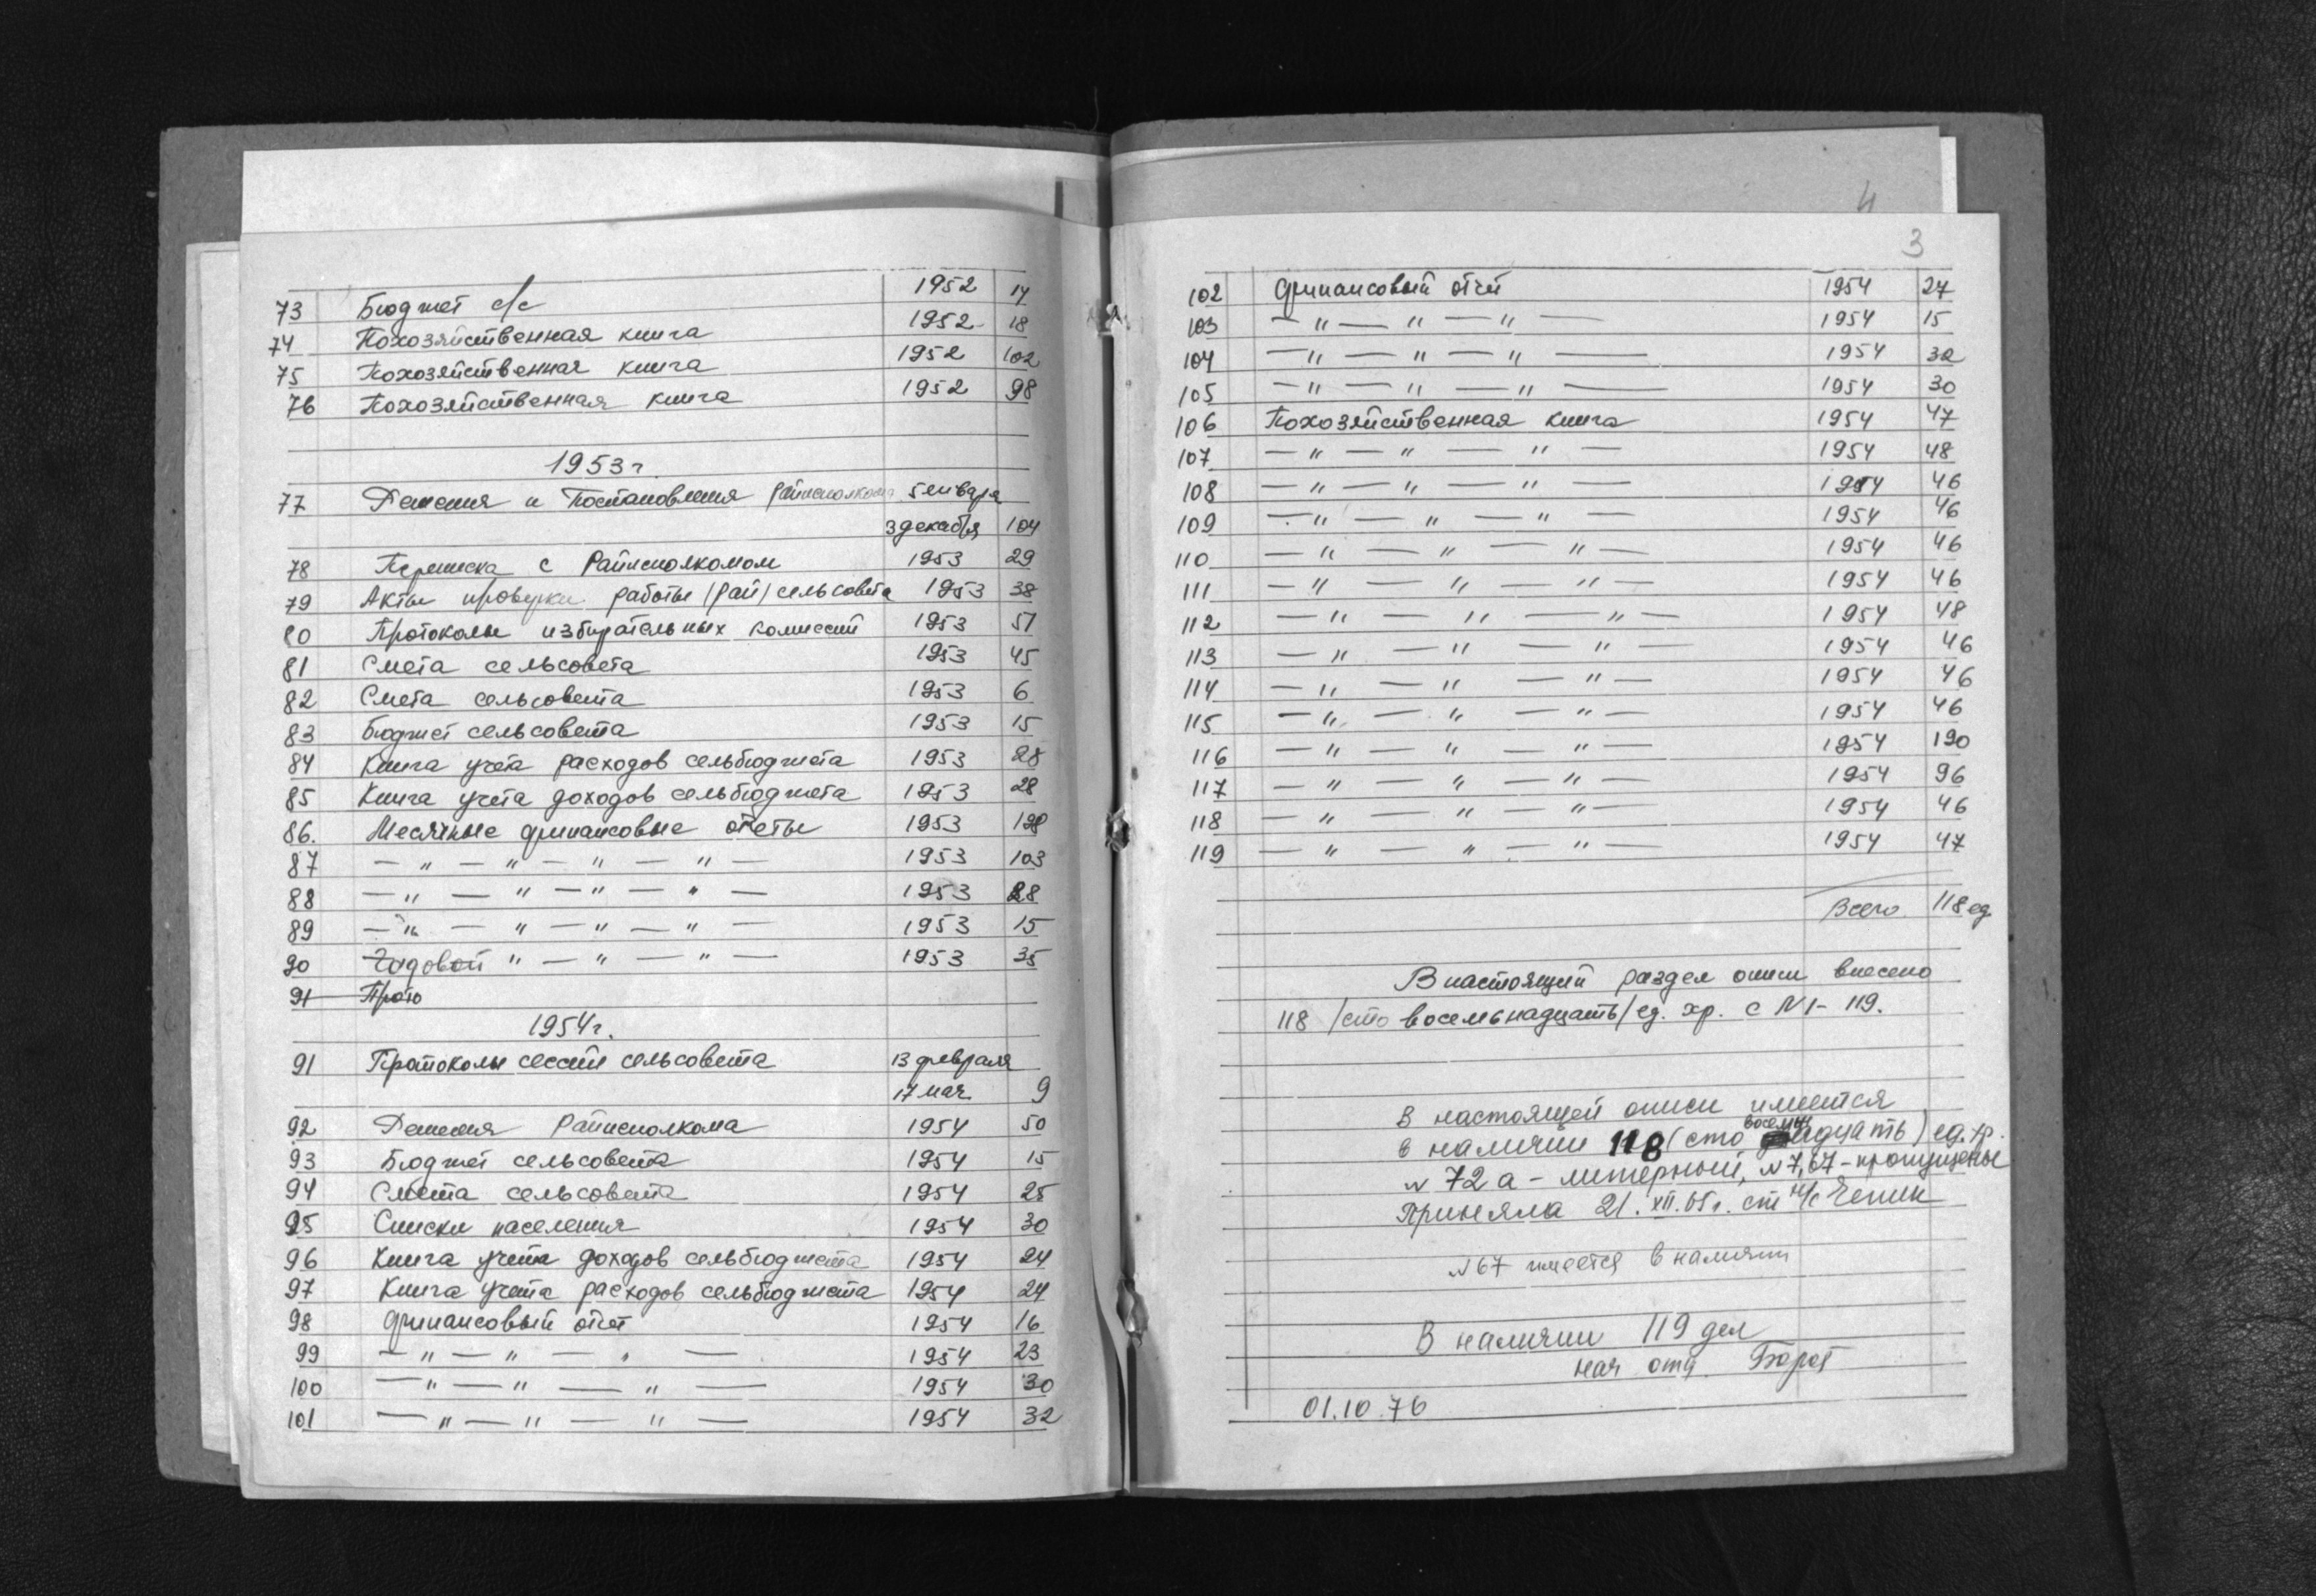 73 Бюджет с/с 1952 14
74 Похозяйственная книга 1952 18
75 Похозяйственная книга 1952 102
76 Похозяйственная книга 1952 98
1953 г.
77 Решения и Постановления райисполкома 5 января
3 декабря 104
78 Переписка с Райисполкомом 1953 29
79 Акты проверки работы (рай) сельсовета 1953 38
80 Протоколы избирательных комиссий 1953 51
81 Смета сельсовета 1953 45
82 Смета сельсовета 1953 6
83 Бюджет сельсовета 1953 15
84 Книга учета расходов сельбюджета 1953 28
85 Книга учета доходов сельбюджета 1953 28
86. Месячные финансовые отчеты 1953
87 — " — " — " — " — 1953 103
88 — " — " — " — " — 1953 28
89 — " — " — " — " — 1953 15
90 Годовой " — " — " — 1953 35
91 Прото
1954 г.
91 Протоколы сессий сельсовета 13 февраля
17 мая 9
92 Решения Райисполкома 1954 50
93 Бюджет сельсовета 1954 15
94 Смета сельсовета 1954 25
95 Списки населения 1954 30
96 Книга учета доходов сельбюджета 1954 24
97 Книга учета расходов сельбюджета 1954 24
98 Финансовый отчет 1954 16
99 — " — " — " — 1954 23
100 — " — " — " — 1954 30
101 — " — " — " — 1954 32
4
3
102 Финансовый отчет 1954 27
103 — " — " — " — 1954 15
104 — " — " — " — 1954 32
105 — " — " — " — 1954 30
106 Похозяйственная книга 1954 47
107 — " — " — " — 1954 48
108 — " — " — " — 1954 46
109 — " — " — " — 1954 46
110 — " — " — " — 1954 46
111 — " — " — " — 1954 46
112 — " — " — " — 1954 48
113 — " — " — " — 1954 46
114 — " — " — " — 1954 46
115 — " — " — " — 1954 46
116 — " — " — " — 1954 190
117 — " — " — " — 1954 96
118 — " — " — " — 1954 46
119 — " — " — " — 1954 47
Всего 118 ед.
В настоящий раздел описи внесено
118 /сто восемьнадцать/ ед. хр. с N 1 - 119.
В настоящей описи имеется
в наличии 118 (сто восемнадцать) ед. хр.
N 72 а - литерный, N 7, 67 - пропущены
Приняла 21. XII. 65 г. ст н/с
N 67 имеется в наличии
В наличии 119 дел
нач отд.
01.10.76